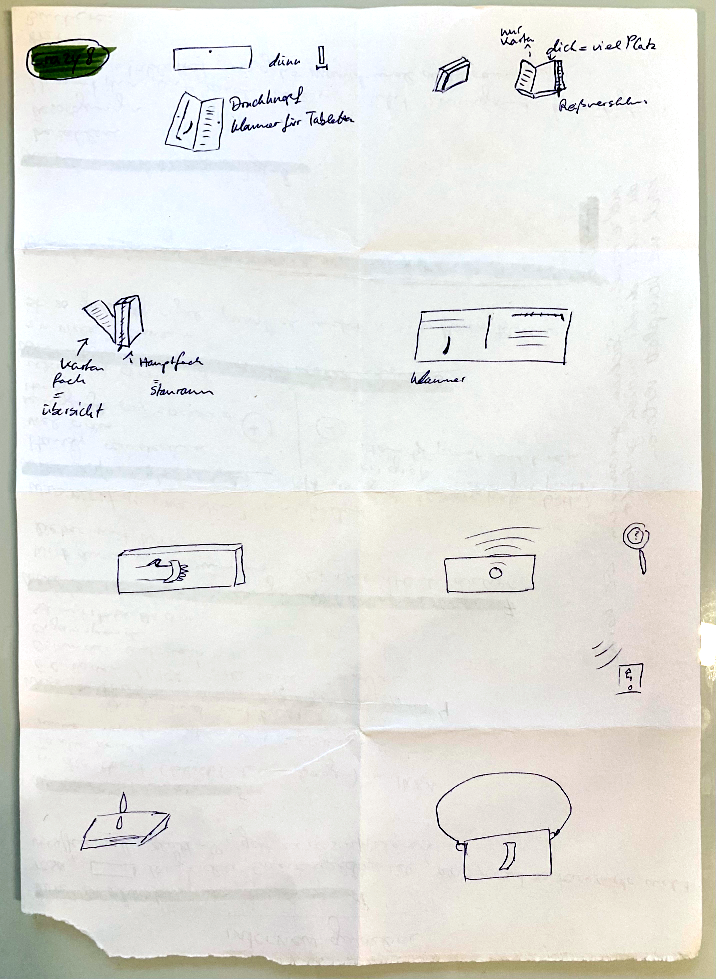 Crazy 8
dünn
Druckknopf
klammer für Tabletten
nur
Karten
dick = viel Platz
Reißverschluss
Karten
fach
=
übersicht
Hauptfach
=
Stauraum
klammer
?